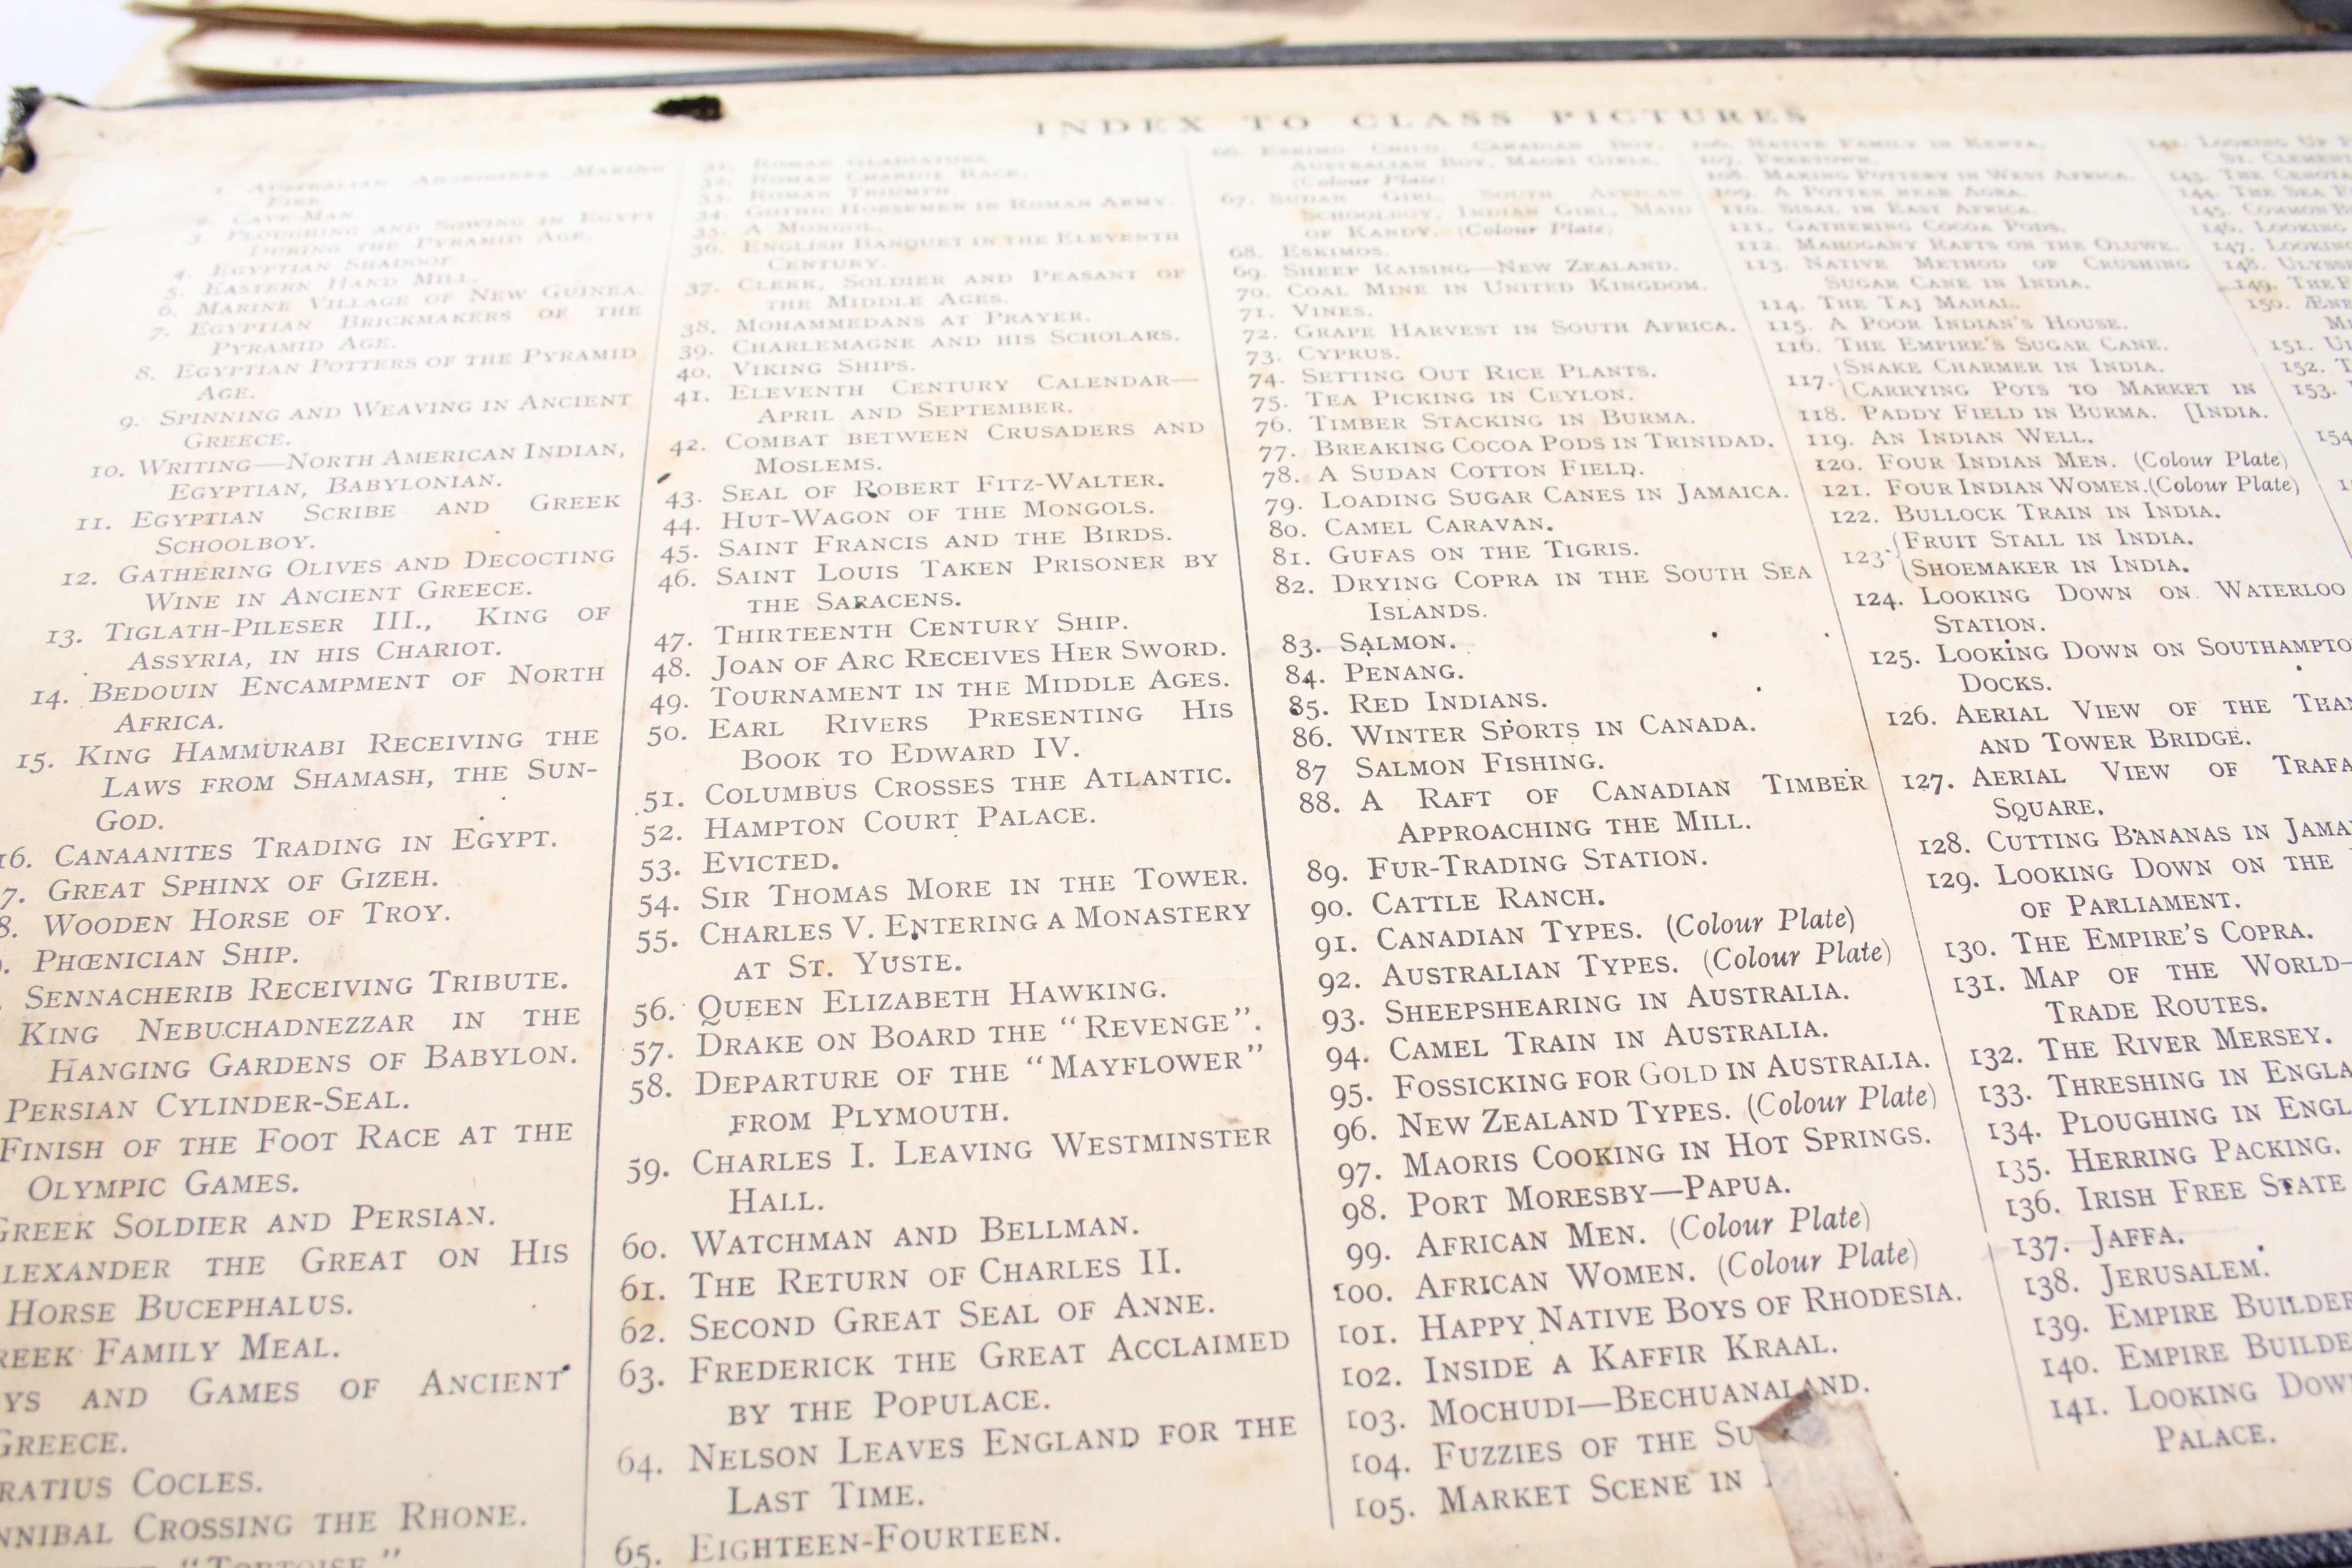 INDEX TO CLASS PICTURES
1. AUSTRALIAN ABORIGINES MAKING
FIRE.
2. CAVE-MAN.
3. PLOUGHING AND SOWING IN EGYPT
DURING THE PYRAMID AGE.
4. EGYPTIAN SHADOOF.
5. EASTERN HAND MILL.
6. MARINE VILLAGE OF NEW GUINEA.
7. EGYPTIAN BRICKMAKERS OF THE
PYRAMID AGE.
8. EGYPTIAN POTTERS OF THE PYRAMID
AGE.
9. SPINNING AND WEAVING IN ANCIENT
GREECE.
10. WRITING—NORTH AMERICAN INDIAN,
EGYPTIAN, BABYLONIAN.
11. EGYPTIAN SCRIBE AND GREEK
SCHOOLBOY.
12. GATHERING OLIVES AND DECOCTING
WINE IN ANCIENT GREECE.
13. TIGLATH-PILESER III., KING OF
ASSYRIA, IN HIS CHARIOT.
14. BEDOUIN ENCAMPMENT OF NORTH
AFRICA.
15. KING HAMMURABI RECEIVING THE
LAWS FROM SHAMASH, THE SUN-
GOD.
16. CANAANITES TRADING IN EGYPT.
7. GREAT SPHINX OF GIZEH.
8. WOODEN HORSE OF TROY.
PHŒNICIAN SHIP.
SENNACHERIB RECEIVING TRIBUTE.
KING NEBUCHADNEZZAR IN THE
HANGING GARDENS OF BABYLON.
PERSIAN CYLINDER-SEAL.
FINISH OF THE FOOT RACE AT THE
OLYMPIC GAMES.
GREEK SOLDIER AND PERSIAN.
LEXANDER THE GREAT ON HIS
HORSE BUCEPHALUS.
REEK FAMILY MEAL.
YS AND GAMES OF ANCIENT
GREECE.
RATIUS COCLES.
NNIBAL CROSSING THE RHONE.
"TORTOISE."
31. ROMAN GLADIATORS.
32. ROMAN CHARIOT RACE.
33. ROMAN TRIUMPH.
34. GOTHIC HORSEMEN IN ROMAN ARMY.
35. A MONGOL.
36. ENGLISH BANQUET IN THE ELEVENTH
CENTURY.
37. CLERK, SOLDIER AND PEASANT OF
THE MIDDLE AGES.
38. MOHAMMEDANS AT PRAYER.
39. CHARLEMAGNE AND HIS SCHOLARS.
40. VIKING SHIPS.
41. ELEVENTH CENTURY CALENDAR—
APRIL AND SEPTEMBER.
42. COMBAT BETWEEN CRUSADERS AND
MOSLEMS.
43. SEAL OF ROBERT FITZ-WALTER.
44. HUT-WAGON OF THE MONGOLS.
45. SAINT FRANCIS AND THE BIRDS.
46. SAINT LOUIS TAKEN PRISONER BY
THE SARACENS.
47. THIRTEENTH CENTURY SHIP.
48. JOAN OF ARC RECEIVES HER SWORD.
49. TOURNAMENT IN THE MIDDLE AGES.
50. EARL RIVERS PRESENTING HIS
BOOK TO EDWARD IV.
51. COLUMBUS CROSSES THE ATLANTIC.
52. HAMPTON COURT PALACE.
53. EVICTED.
54. SIR THOMAS MORE IN THE TOWER.
55. CHARLES V. ENTERING A MONASTERY
AT ST. YUSTE.
56. QUEEN ELIZABETH HAWKING.
57. DRAKE ON BOARD THE "REVENGE".
58. DEPARTURE OF THE "MAYFLOWER"
FROM PLYMOUTH.
59. CHARLES I. LEAVING WESTMINSTER
HALL.
60. WATCHMAN AND BELLMAN.
61. THE RETURN OF CHARLES II.
62. SECOND GREAT SEAL OF ANNE.
63. FREDERICK THE GREAT ACCLAIMED
BY THE POPULACE.
64. NELSON LEAVES ENGLAND FOR THE
LAST TIME.
65. EIGHTEEN-FOURTEEN.
66. ESKIMO CHILD, CANADIAN BOY,
AUSTRALIAN BOY, MAORI GIRLS.
(Colour Plate)
67. SUDAN GIRL, SOUTH AFRICAN
SCHOOLBOY, INDIAN GIRL, MAID
OF KANDY. (Colour Plate)
68. ESKIMOS.
69. SHEEP RAISING—NEW ZEALAND.
70. COAL MINE IN UNITED KINGDOM.
71. VINES.
72. GRAPE HARVEST IN SOUTH AFRICA.
73. CYPRUS.
74. SETTING OUT RICE PLANTS.
75. TEA PICKING IN CEYLON.
76. TIMBER STACKING IN BURMA.
77. BREAKING COCOA PODS IN TRINIDAD.
78. A SUDAN COTTON FIELD.
79. LOADING SUGAR CANES IN JAMAICA.
80. CAMEL CARAVAN.
81. GUFAS ON THE TIGRIS.
82. DRYING COPRA IN THE SOUTH SEA
ISLANDS.
83. SALMON.
84. PENANG.
85. RED INDIANS.
86. WINTER SPORTS IN CANADA.
87 SALMON FISHING.
88. A RAFT OF CANADIAN TIMBER
APPROACHING THE MILL.
89. FUR-TRADING STATION.
90. CATTLE RANCH.
91. CANADIAN TYPES. (Colour Plate)
92. AUSTRALIAN TYPES. (Colour Plate)
93. SHEEPSHEARING IN AUSTRALIA.
94. CAMEL TRAIN IN AUSTRALIA.
95. FOSSICKING FOR GOLD IN AUSTRALIA.
96. NEW ZEALAND TYPES. (Colour Plate)
97. MAORIS COOKING IN HOT SPRINGS.
98. PORT MORESBY—PAPUA.
99. AFRICAN MEN. (Colour Plate)
100. AFRICAN WOMEN. (Colour Plate)
101. HAPPY NATIVE BOYS OF RHODESIA.
102. INSIDE A KAFFIR KRAAL.
103. MOCHUDI—BECHUANALAND.
104. FUZZIES OF THE SU
105. MARKET SCENE IN
106. NATIVE FAMILY IN KENYA.
107. FREETOWN.
108. MAKING POTTERY IN WEST AFRICA.
109. A POTTER NEAR AGRA.
110. SISAL IN EAST AFRICA.
111. GATHERING COCOA PODS.
112. MAHOGANY RAFTS ON THE OLUWE.
113. NATIVE METHOD OF CRUSHING
SUGAR CANE IN INDIA.
114. THE TAJ MAHAL.
115. A POOR INDIAN'S HOUSE.
116. THE EMPIRE'S SUGAR CANE.
SNAKE CHARMER IN INDIA.
117. CARRYING POTS TO MARKET IN
118. PADDY FIELD IN BURMA. [INDIA.
119. AN INDIAN WELL.
120. FOUR INDIAN MEN. (Colour Plate)
121. FOUR INDIAN WOMEN. (Colour Plate)
122. BULLOCK TRAIN IN INDIA.
123. FRUIT STALL IN INDIA.
SHOEMAKER IN INDIA.
124. LOOKING DOWN ON WATERLOO
STATION.
125. LOOKING DOWN ON SOUTHAMPTO
DOCKS.
126. AERIAL VIEW OF THE THA
AND TOWER BRIDGE.
127. AERIAL VIEW OF TRAFA
SQUARE.
128. CUTTING BANANAS IN JAMA
129. LOOKING DOWN ON THE
OF PARLIAMENT.
130. THE EMPIRE'S COPRA.
131. MAP OF THE WORLD—
TRADE ROUTES.
132. THE RIVER MERSEY.
133. THRESHING IN ENGLA
134. PLOUGHING IN ENGL
135. HERRING PACKING.
136. IRISH FREE STATE
137. JAFFA.
138. JERUSALEM.
139. EMPIRE BUILDER
140. EMPIRE BUILDE
141. LOOKING DOW
PALACE.
142. LOOKING UP
ST. CLEMEN
143. THE CENOTA
144. THE SEA
145. COMMON
146. LOOKING
147. LOOKING
148. ULYSSE
149. THE
150. ÆNE
151.
152. T
153.
154